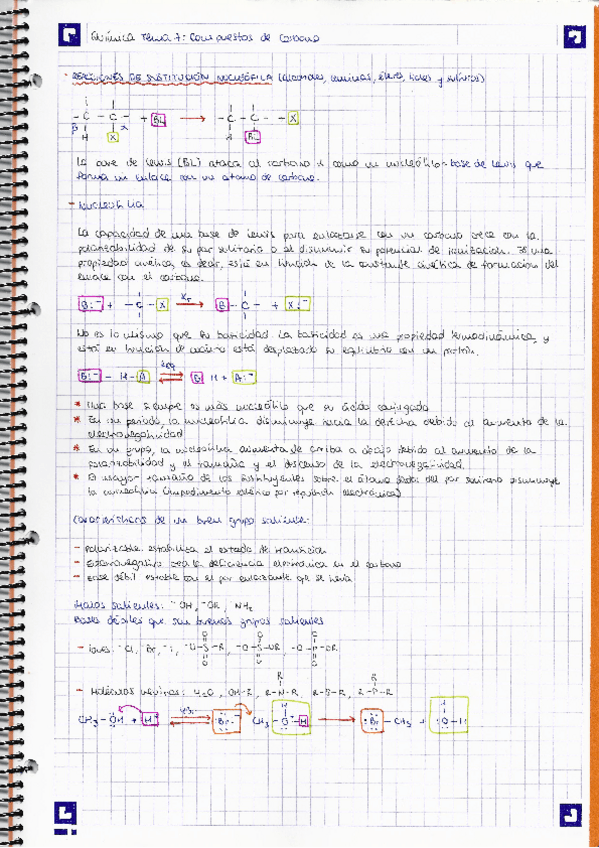 Química Tema 7: Compuestos de Carbono
REACCIONES DE SUSTITUCIÓN NUCLEÓFILA (alcoholes, aminas, éteres, tioles y sulfuros)
- C - C - + BL → - C - C - - X
β H X α BL
La base de Lewis (BL) ataca al carbono α como un nucleófilo = base de Lewis que
forma un enlace con un átomo de carbono.
- Nucleofilia
La capacidad de una base de Lewis para enlazarse con un carbono crece con la
polarizabilidad de su par solitario o al disminuir su potencial de ionización. Es una
propiedad cinética, es decir, está en función de la constante cinética de formación del
enlace con el carbono.
B:⁻ + - C - X → B - C - + X:⁻
No es lo mismo que su basicidad. La basicidad es una propiedad termodinámica, y
está en función de cuánto está desplazado su equilibrio con un protón.
B:⁻ - H - A ⇌ B H + A:⁻
* Una base siempre es más nucleófila que su ácido conjugado
* En un periodo, la nucleofilia disminuye hacia la derecha debido al aumento de la
electronegatividad
* En un grupo, la nucleofilia aumenta de arriba a abajo debido al aumento de la
polarizabilidad y el tamaño y el descenso de la electronegatividad.
* El mayor tamaño de los sustituyentes sobre el átomo dador del par solitario disminuye
la nucleofilia (impedimento estérico por repulsión electrónica)
Características de un buen grupo saliente:
- Polarizable: estabiliza el estado de transición
- Electronegativo: crea la deficiencia electrónica en el carbono
- Base débil: estable con el par enlazante que se lleva
Malos salientes: ⁻OH, ⁻OR, NH₂
Bases débiles que son buenos grupos salientes
- Iones: ⁻Cl, Br, ⁻I, ⁻O-S-R, ⁻O-S-OR, ⁻O-P-OR
- Moléculas neutras: H₂O, OH-R, R-N-R, R-S-R, R-P-R
CH₃ - OH + H⁺ ⇌ :Br:⁻ CH₃ - O⁺ - H → :Br - CH₃ + :O-H